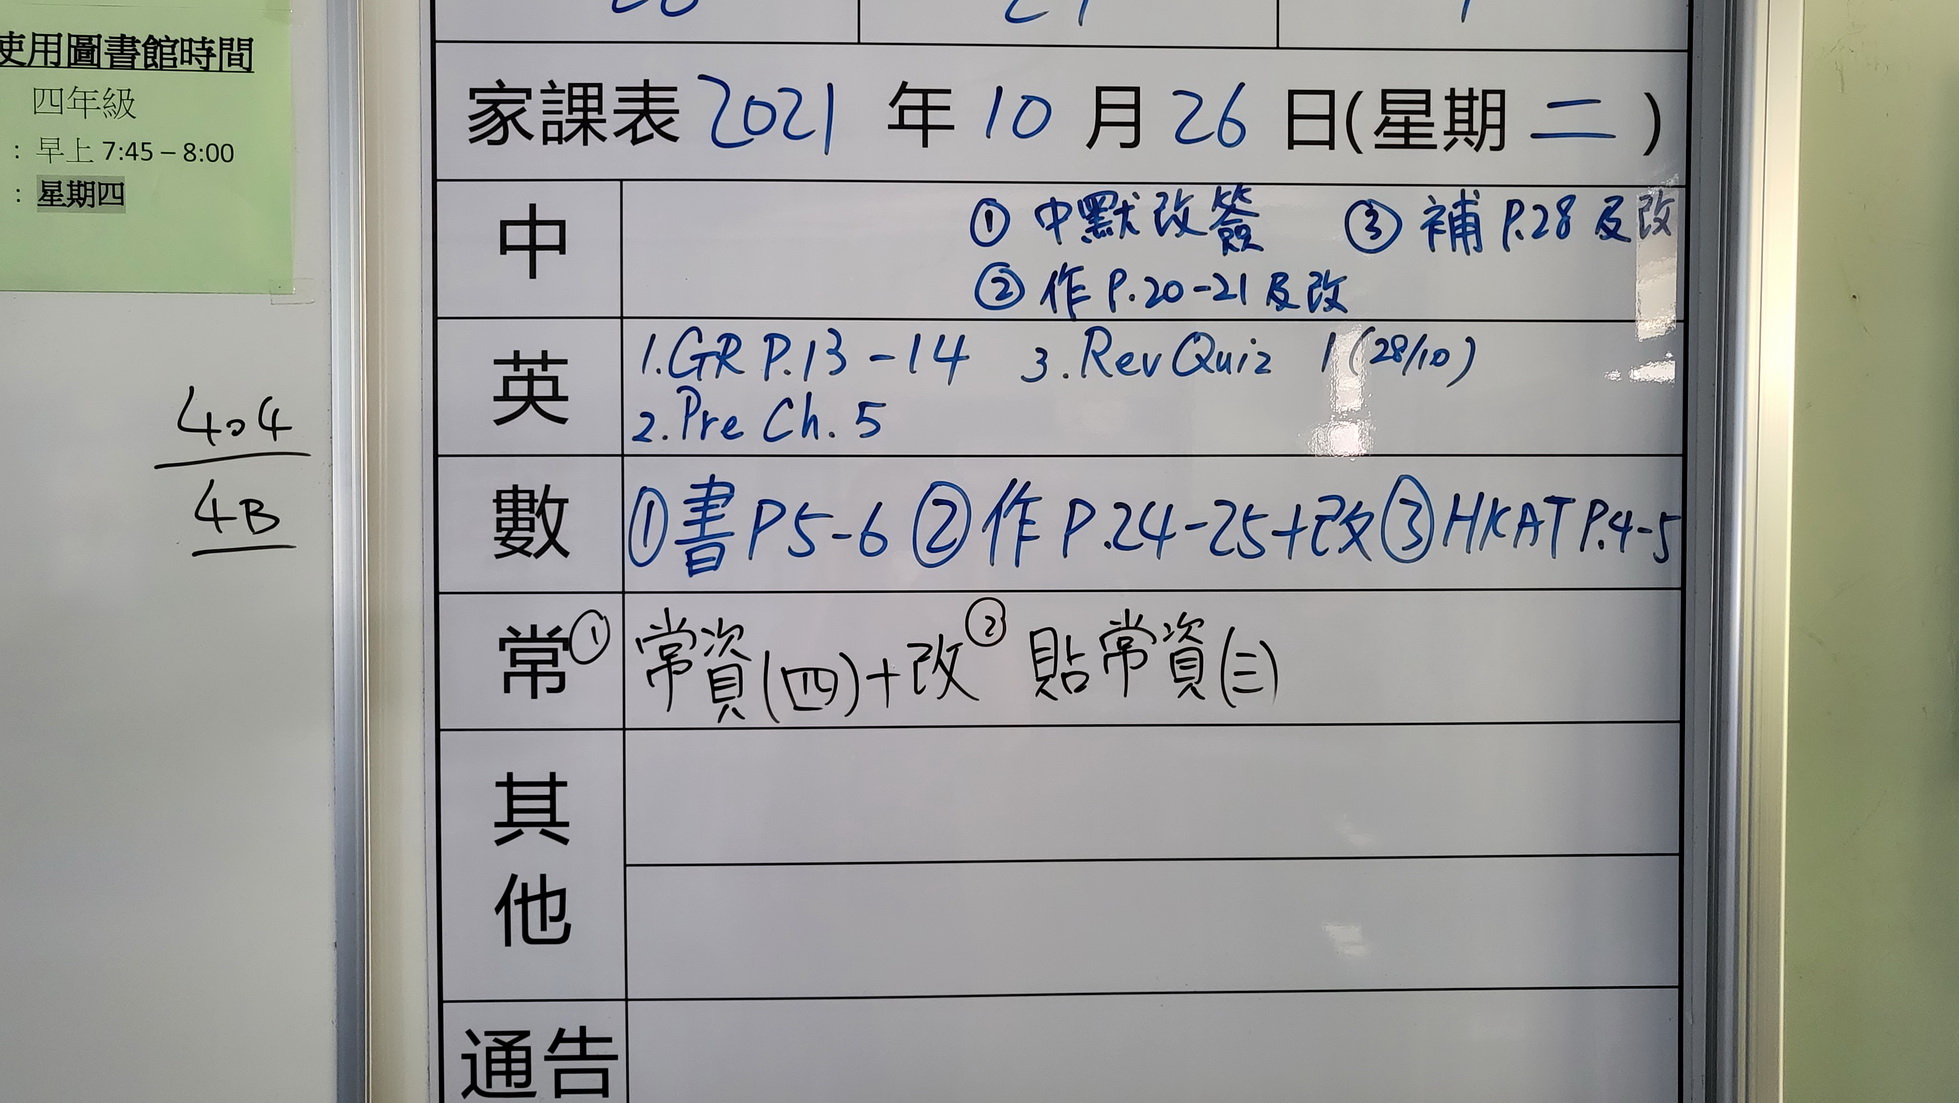 使用圖書館時間
四年級
: 早上 7:45 – 8:00
: 星期四
404
4B
家課表 2021 年 10 月 26 日(星期 二 )
中
① 中默改簽 ③ 補 P.28 及改
② 作 P.20-21 及改
英
1.GR P.13-14 3.Rev Quiz 1 (28/10)
2.Pre Ch.5
數
①書 P5-6 ②作 P.24-25+改 ③HKAT P.4-5
常
① 常資(四)+改 ② 貼常資(三)
其他
通告